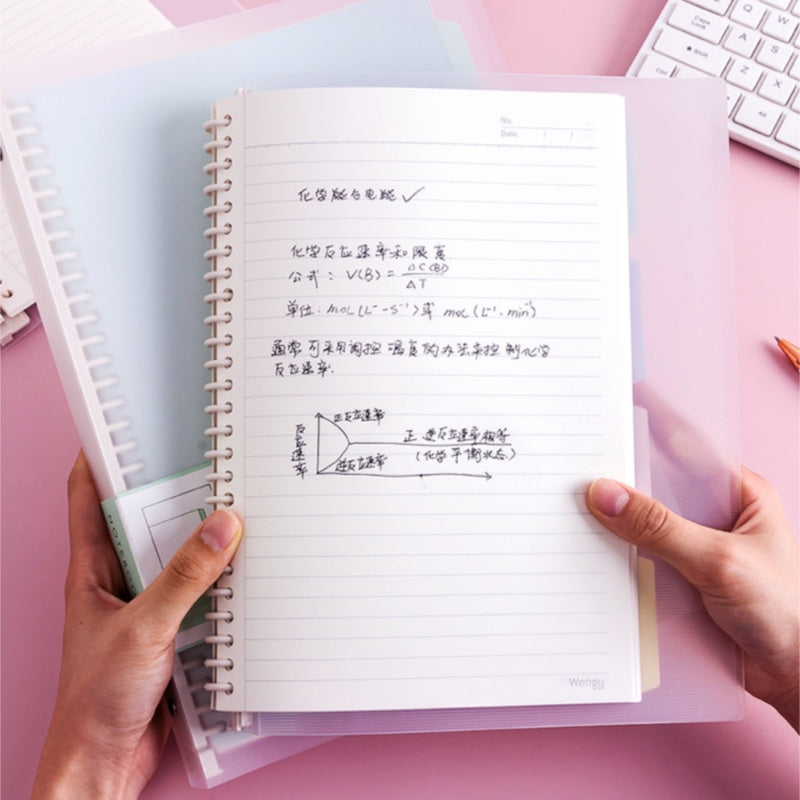 No.
Date. / /
化学能与电能 ✓
化学反应速率和限度
公式: V(B) = ΔC(B) / ΔT
单位: mol(L⁻-S⁻¹)或 mol(L⁻¹·min⁻¹)
通常可采用调控温度的办法来控制化学
反应速率.
正反应速率
反应速率
正.逆反应速率相等
(化学平衡状态.)
逆反应速率
NOTEBOOK
Wengu
Caps Lock
Shift
Ctrl
Alt
Q
W
A
S
Z
X